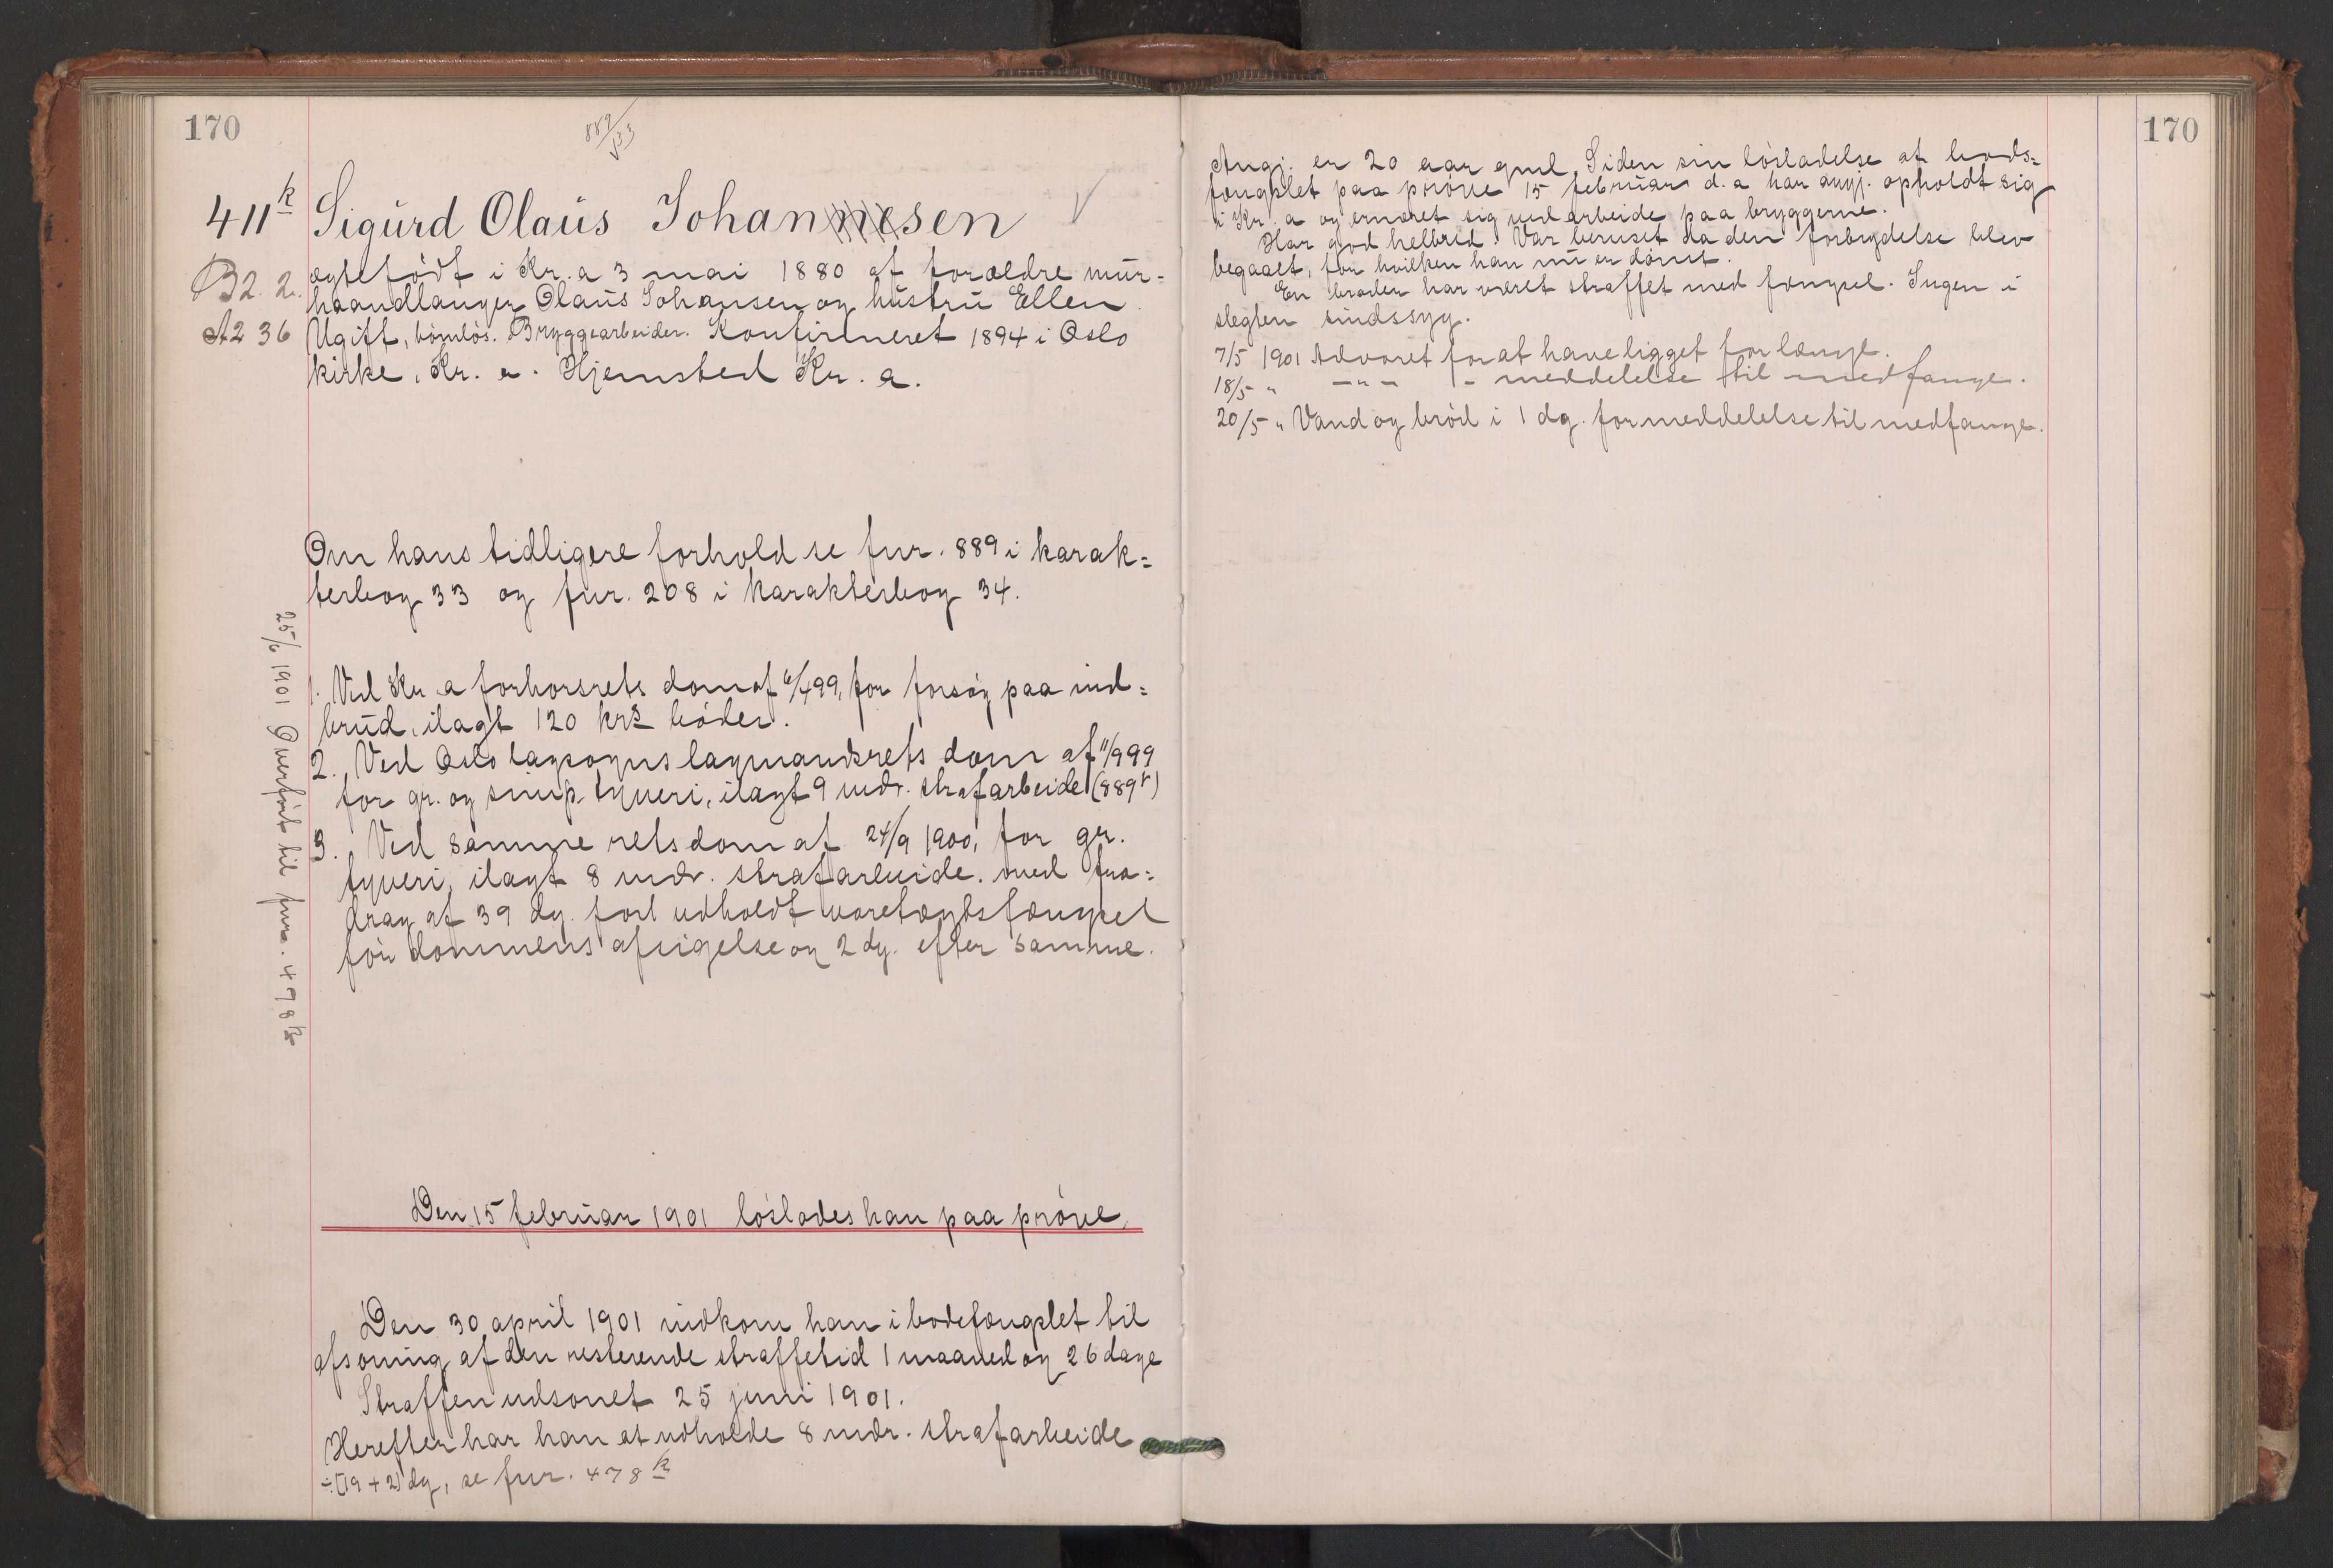 170
889/33
411k Sigurd Olaus Johannesen
B2. 2.
ægtefødt i Kr.a 3 mai 1880 af forældre mur=
haandlanger Olaus Johansen og hustru Ellen.
A2 36 Ugift, børnløs. Bryggearbeider. Konfirmeret 1894 i Oslo
kirke, Kr. a. Hjemsted Kr. a.
Om hans tidligere forhold se fnr. 889 i karak=
terbog 33 og fnr. 208 i karakterbog 34.
1. Ved Kr a forhørsrets dom af 6/4 99, for forsøg paa ind=
brud, ilagt 120 krs bøder.
2. Ved Oslo lagsogns lagmandsrets dom af 11/9 99
for gr. og simp. tyveri, ilagt 9 mdr. strafarbeide (889r)
3. Ved samme rets dom af 24/9 1900, for gr.
tyveri, ilagt 8 mdr. strafarbeide. med fra=
drag af 39 dg. for udholdt varetægtsfængsel
før dommens afsigelse og 2 dg. efter samme.
25/6 1901 Overført til fnr. 478k
Den 15 februar 1901 løslodes han paa prøve.
Den 30 april 1901 indkom han i bodsfængslet til
afsoning af den resterende straffetid 1 maaned og 26 dage
Straffen udsonet 25 juni 1901.
Herefter har han at udholde 8 mdr. strafarbeide
÷ (19 + 2) dg, se fnr. 478k
170
Angj. er 20 aar gml. Siden sin løsladelse af bods=
fængslet paa prøve 15 februar d. a har angj. opholdt sig
i Kr. a og ernæret sig ved arbeide paa bryggerne.
Har god helbred. Var beruset da den forbrydelse blev
begaaet, for hvilken han nu er dømt.
En broder har været straffet med fængsel. Ingen i
slegten sindssyg.
7/5 1901 Advaret for at have ligget for længe.
18/5 " — " — - meddelelse til medfange.
20/5 " Vand og brød i 1 dg. for meddelelse til medfange.